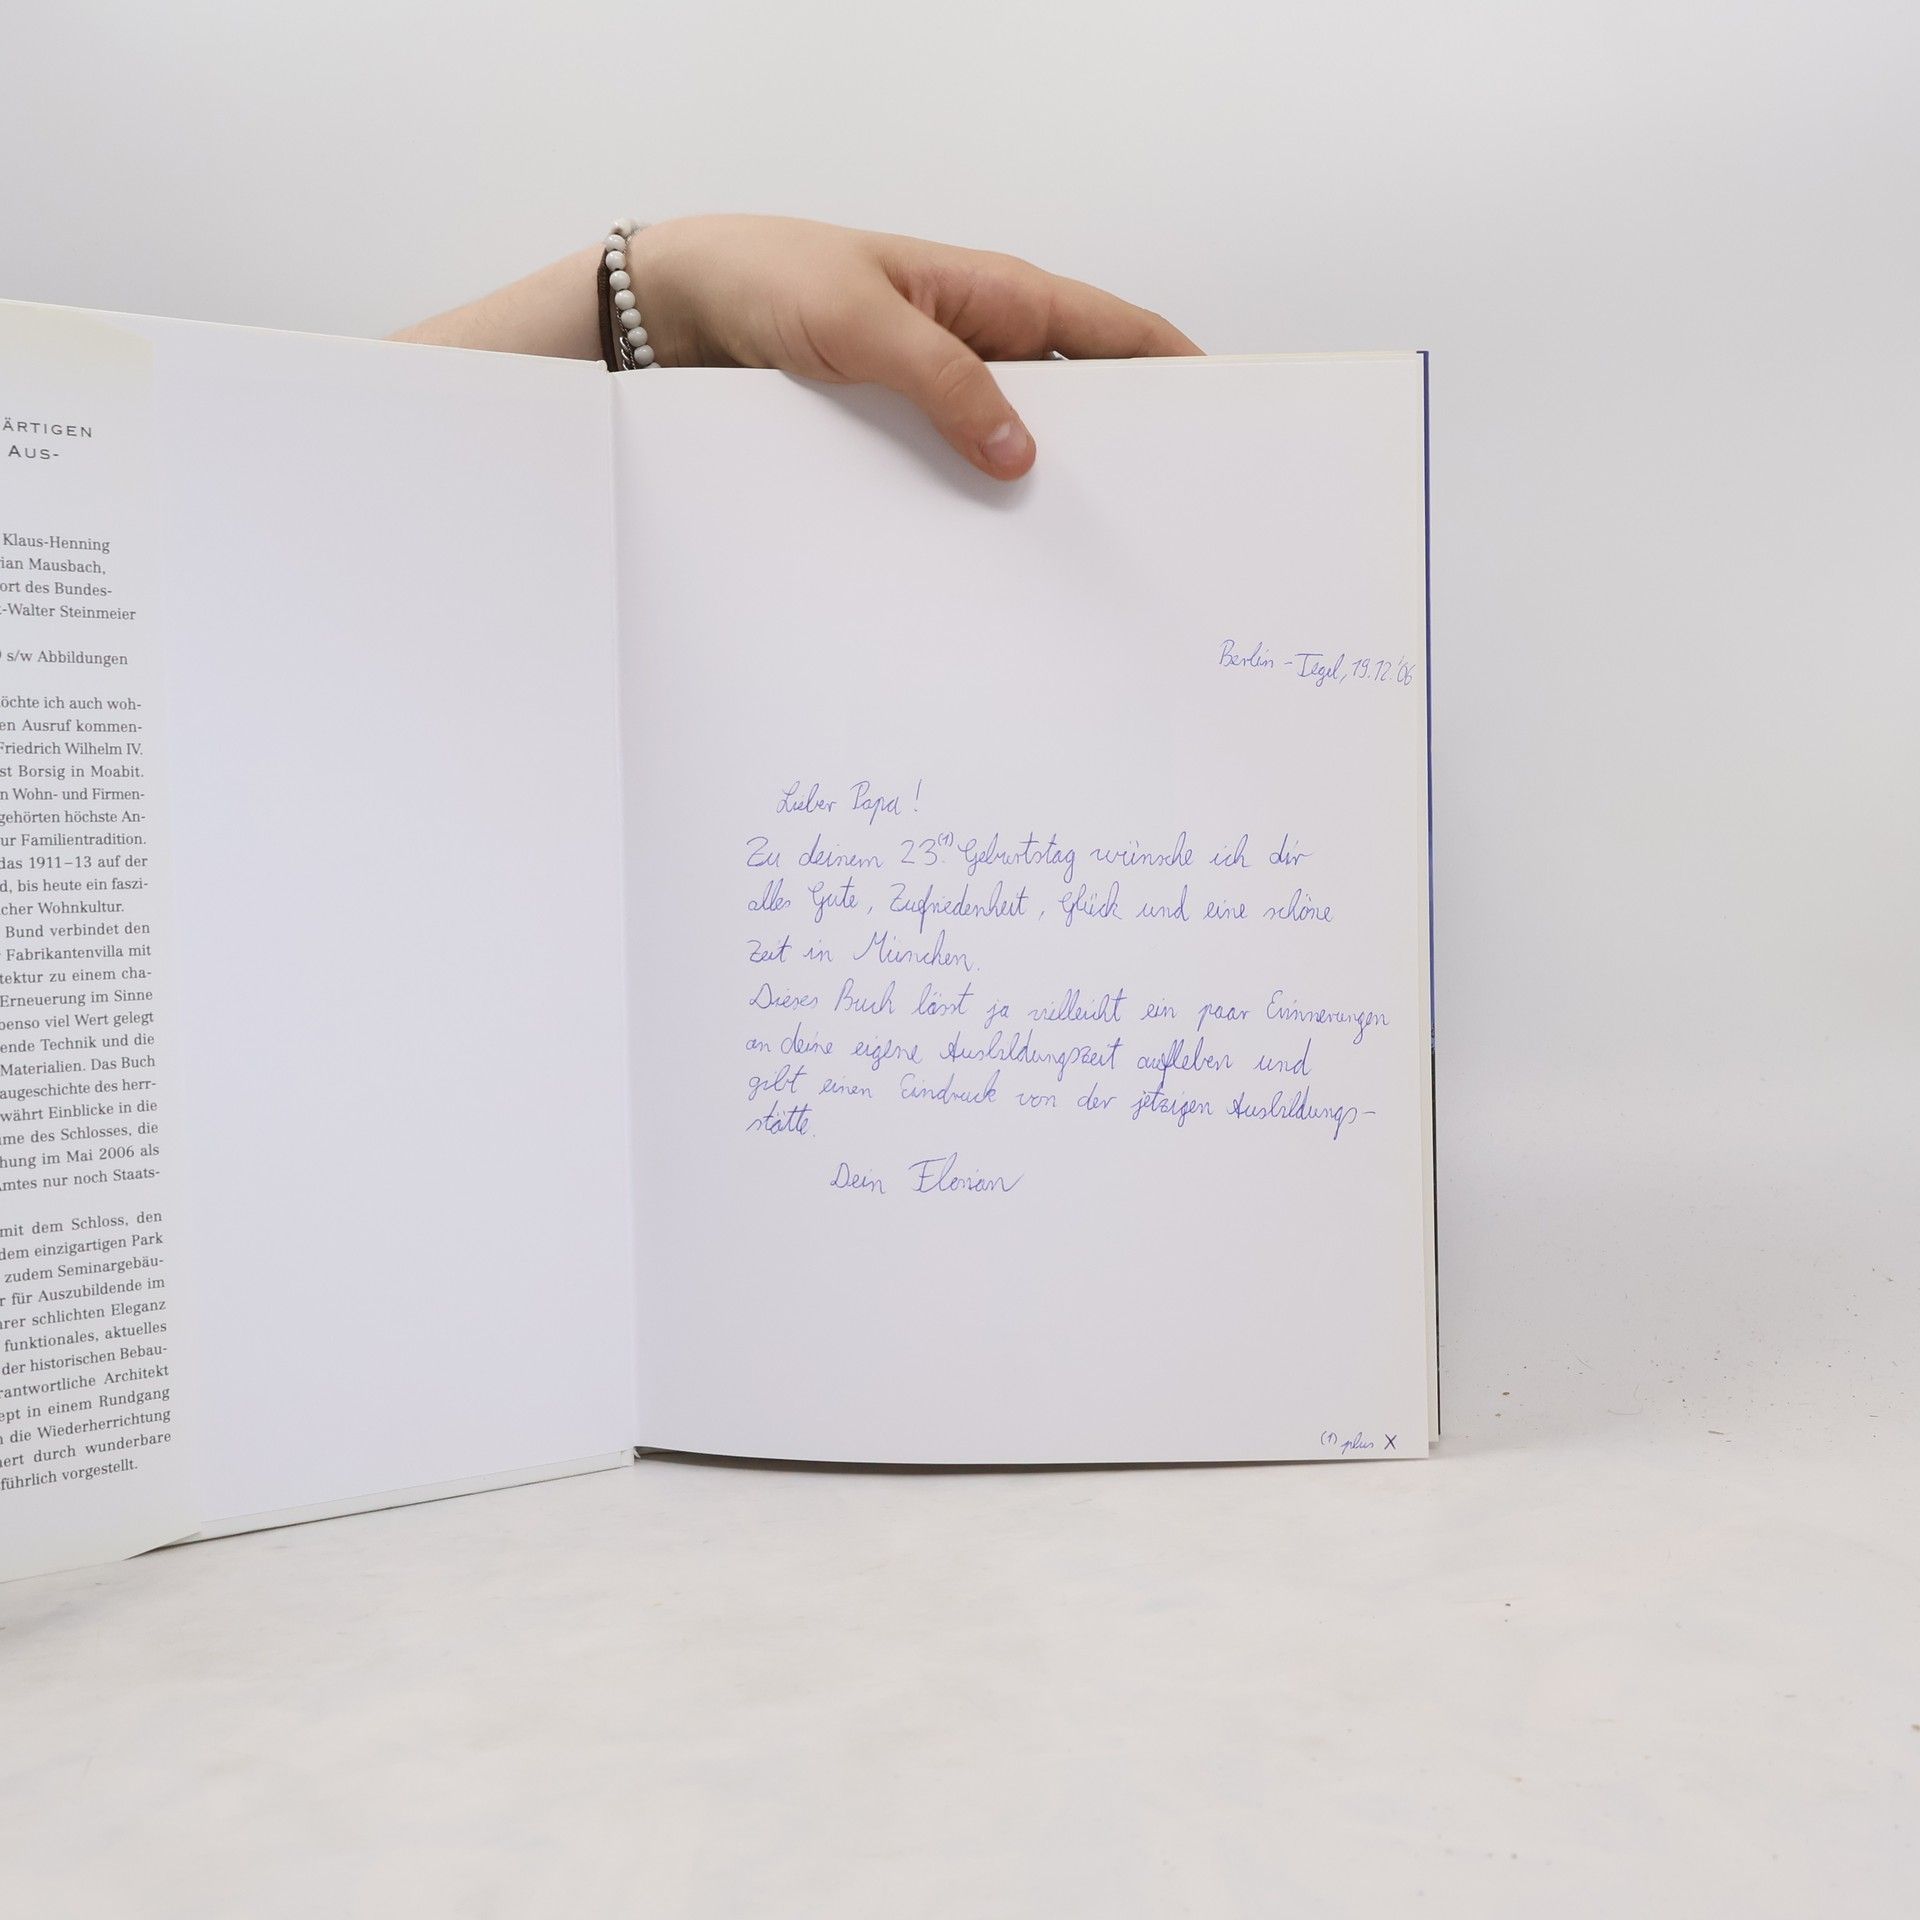 ÄRTIGEN
AUS-
Klaus-Henning
ian Mausbach,
ort des Bundes-
-Walter Steinmeier
s/w Abbildungen
öchte ich auch woh-
en Ausruf kommen-
Friedrich Wilhelm IV.
st Borsig in Moabit.
n Wohn- und Firmen-
gehörten höchste An-
ur Familientradition.
das 1911–13 auf der
d, bis heute ein faszi-
cher Wohnkultur.
Bund verbindet den
Fabrikantenvilla mit
tektur zu einem cha-
Erneuerung im Sinne
benso viel Wert gelegt
ende Technik und die
Materialien. Das Buch
augeschichte des herr-
währt Einblicke in die
me des Schlosses, die
hung im Mai 2006 als
Amtes nur noch Staats-
mit dem Schloss, den
dem einzigartigen Park
zudem Seminargebäu-
r für Auszubildende im
hrer schlichten Eleganz
funktionales, aktuelles
der historischen Bebau-
rantwortliche Architekt
ept in einem Rundgang
n die Wiederherrichtung
ert durch wunderbare
führlich vorgestellt.
Berlin-Tegel, 19.12.'06
Lieber Papa!
Zu deinem 23.(1) Geburtstag wünsche ich dir
alles Gute, Zufriedenheit, Glück und eine schöne
Zeit in München.
Dieses Buch lässt ja vielleicht ein paar Erinnerungen
an deine eigene Ausbildungszeit aufleben und
gibt einen Eindruck von der jetzigen Ausbildungs-
stätte.
Dein Florian
(1) plus X